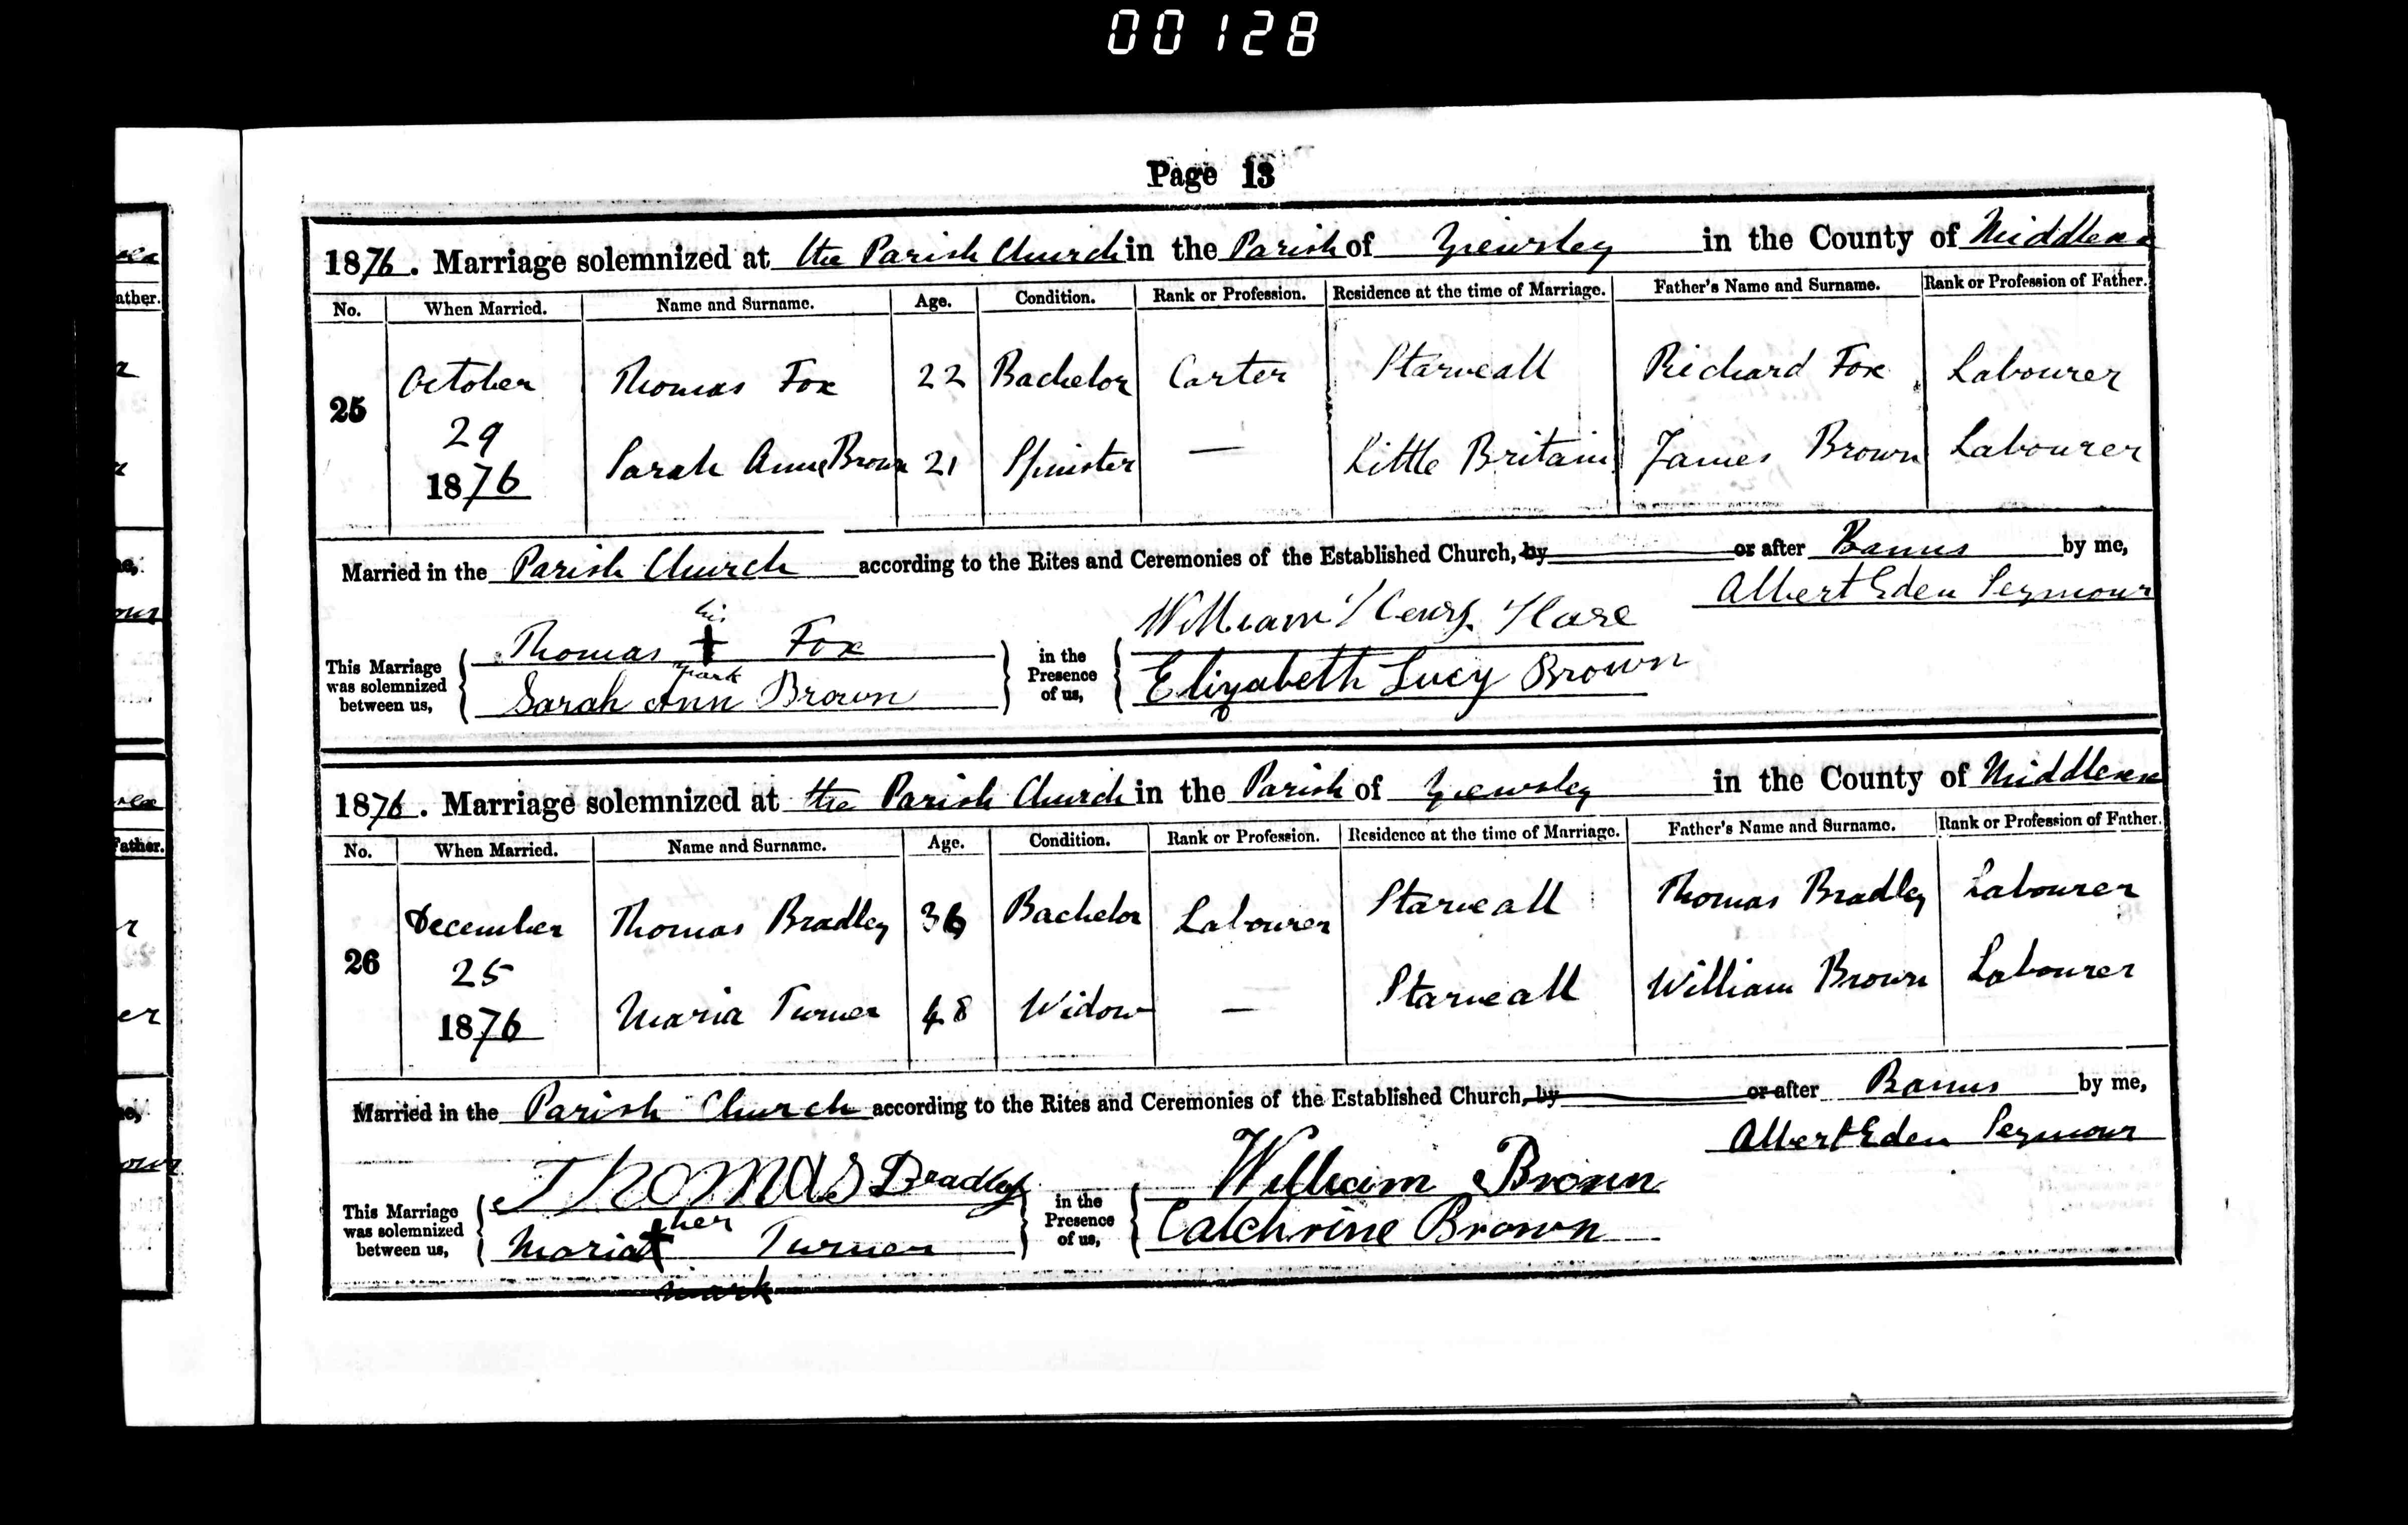 00128
Page 13
1876. Marriage solemnized at the Parish Church in the Parish of Yiewsley in the County of Middlesex
No. When Married. Name and Surname. Age. Condition. Rank or Profession. Residence at the time of Marriage. Father's Name and Surname. Rank or Profession of Father.
October Thomas Fox 22 Bachelor Carter Starveall Richard Fox Labourer
25
29
Sarah Anne Brown 21 Spinster — Little Britain James Brown Labourer
1876
Married in the Parish Church according to the Rites and Ceremonies of the Established Church, by or after Banns by me,
Albert Eden Seymour
This Marriage was solemnized between us,
Thomas his + mark Fox
Sarah Ann Brown
in the Presence of us,
William Henry Hare
Elizabeth Lucy Brown
1876. Marriage solemnized at the Parish Church in the Parish of Yiewsley in the County of Middlesex
No. When Married. Name and Surname. Age. Condition. Rank or Profession. Residence at the time of Marriage. Father's Name and Surname. Rank or Profession of Father.
December Thomas Bradley 36 Bachelor Labourer Starveall Thomas Bradley Labourer
26
25
1876 Maria Turner 48 Widow — Starveall William Brown Labourer
Married in the Parish Church according to the Rites and Ceremonies of the Established Church, by or after Banns by me,
Albert Eden Seymour
This Marriage was solemnized between us,
Thomas Bradley
Maria + her mark Turner
in the Presence of us,
William Brown
Catchrine Brown